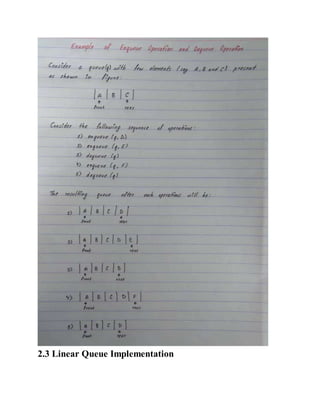 Example of Enqueue Operation and Dequeue Operation
Consider a queue(q) with few elements (say A, B and C) present
as shown in figure:
| A | B | C |
front rear
Consider the following sequence of operations:
1) enqueue (q, D)
2) enqueue (q, E)
3) dequeue (q)
4) enqueue (q, F)
5) dequeue (q)
The resulting queue after each operations will be:
1) | A | B | C | D |
front rear
2) | A | B | C | D | E |
front rear
3) | A | B | C | D |
front rear
4) | A | B | C | D | F |
front rear
5) | A | B | C | D |
front rear
2.3 Linear Queue Implementation